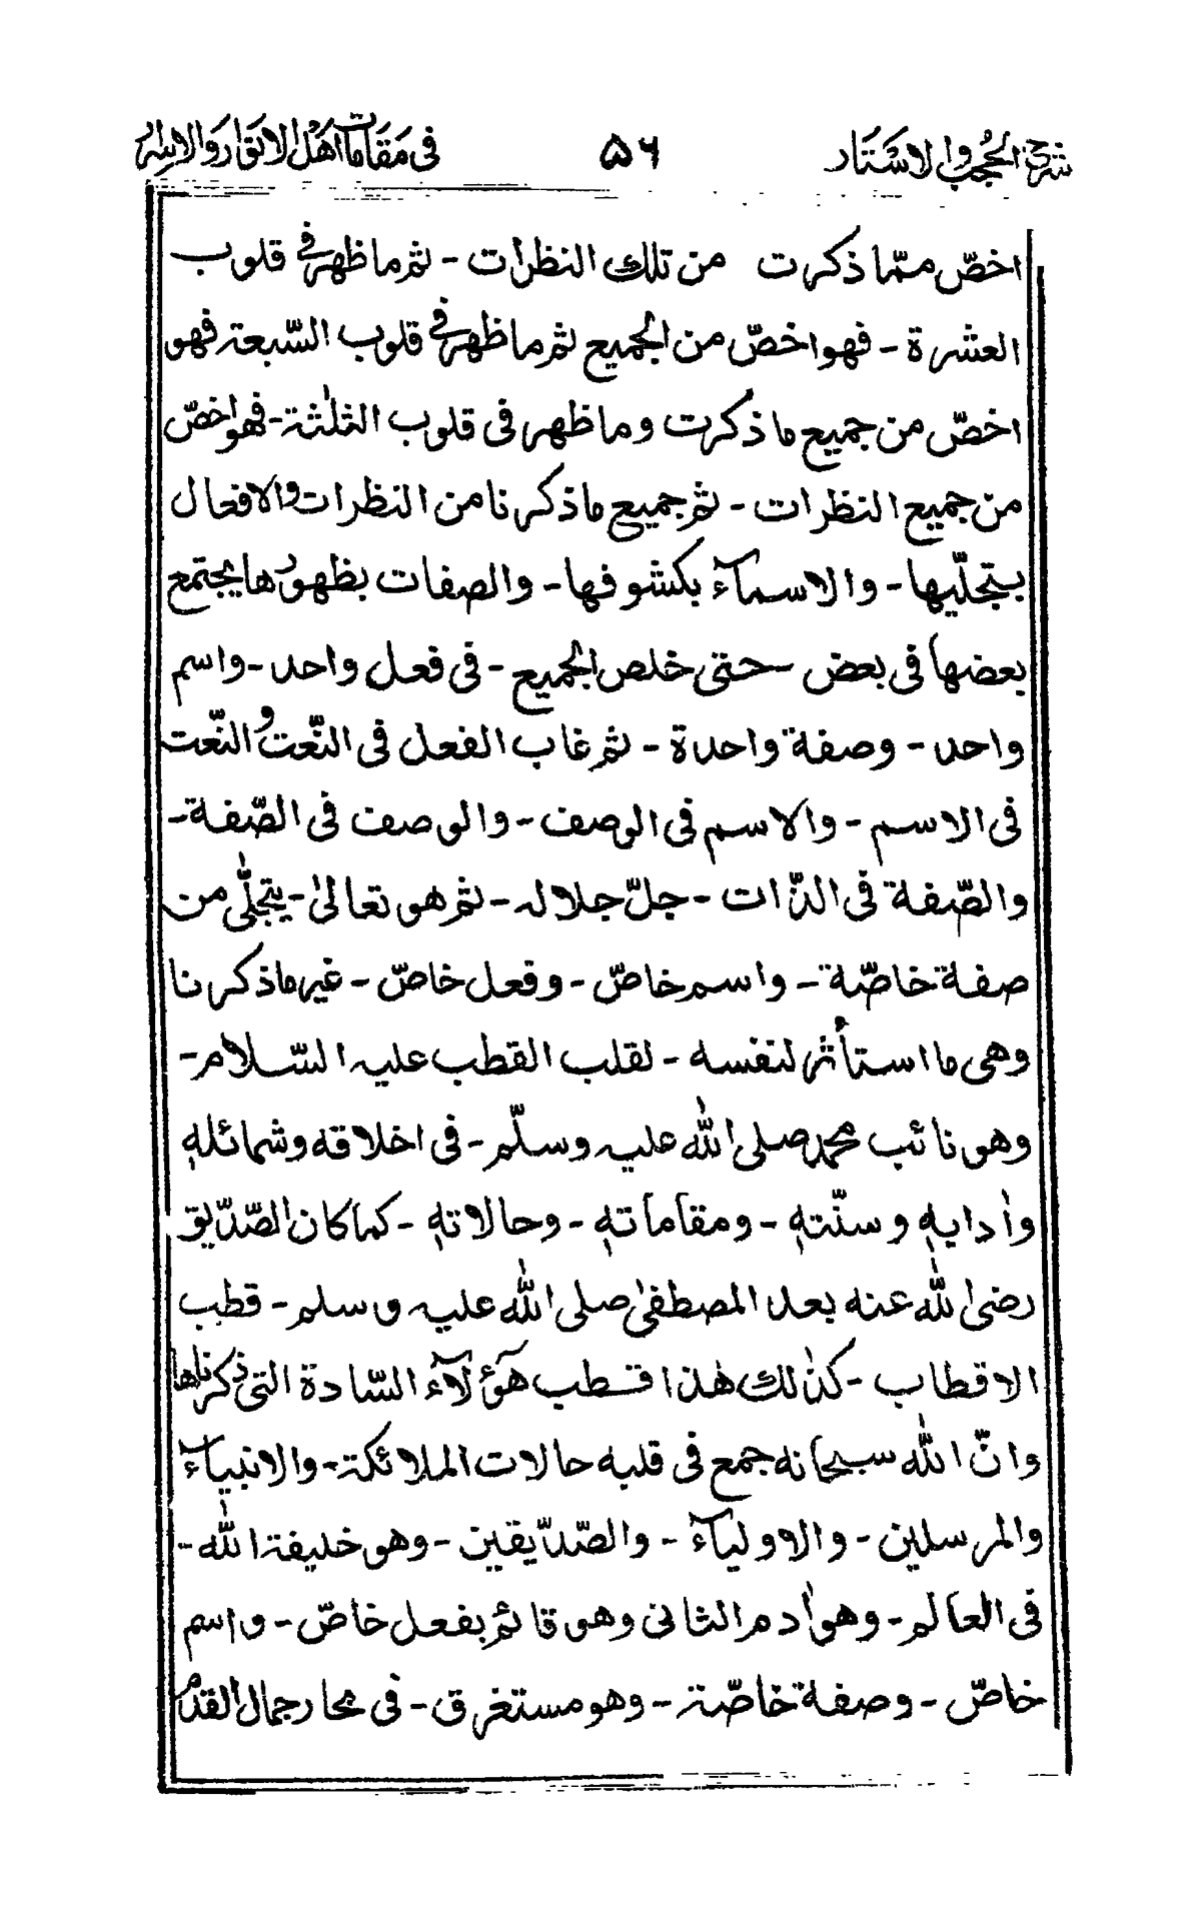 شرح الحجب والاستار ۵۶ في مقامات اهل الانوار والاسرار
اخصّ ممّا ذكرت من تلك النظرات - ثم ما ظهر في قلوب
العشرة - فهو اخصّ من الجميع ثم ما ظهر في قلوب السّبعة فهو
اخصّ من جميع ما ذكرت وما ظهر في قلوب الثلٰثة - فهو اخصّ
من جميع النظرات - ثم جميع ما ذكرنا من النظرات والافعال
بتجلّيها - والاسمآء بكشوفها - والصفات بظهورها يجتمع
بعضها في بعض حتى خلص الجميع - في فعل واحد - واسم
واحد - وصفة واحدة - ثم غاب الفعل في النّعت والنّعت
في الاسم - والاسم في الوصف - والوصف في الصّفة -
والصّفة في الذّات - جلّ جلاله - ثم هو تعالىٰ - يتجلّٰى من
صفة خاصّة - واسم خاصّ - وفعل خاصّ - غير ما ذكرنا
وهي ما استأثر لنفسه - لقلب القطب عليه السّلام -
وهو نائب محمد صلى اللّٰه عليه وسلّم - في اخلاقه وشمائلهٖ
واٰدابهٖ وسنّتهٖ - ومقاماتهٖ - وحالاتهٖ - كما كان الصّدّيق
رضى اللّٰه عنه بعد المصطفىٰ صلى اللّٰه عليه وسلم - قطب
الاقطاب - كذٰلك هٰذا قطب هٓؤلآء السّادة التى ذكرناها
وانّ اللّٰه سبحانه جمع في قلبه حالات الملائكة - والانبيآء
والمرسلين - والاوليآء - والصّدّيقين - وهو خليفة اللّٰه -
في العالم - وهو اٰدم الثاني وهو قائم بفعل خاصّ - واسم
خاصّ - وصفة خاصّة - وهو مستغرق - في بحار جمال القدم